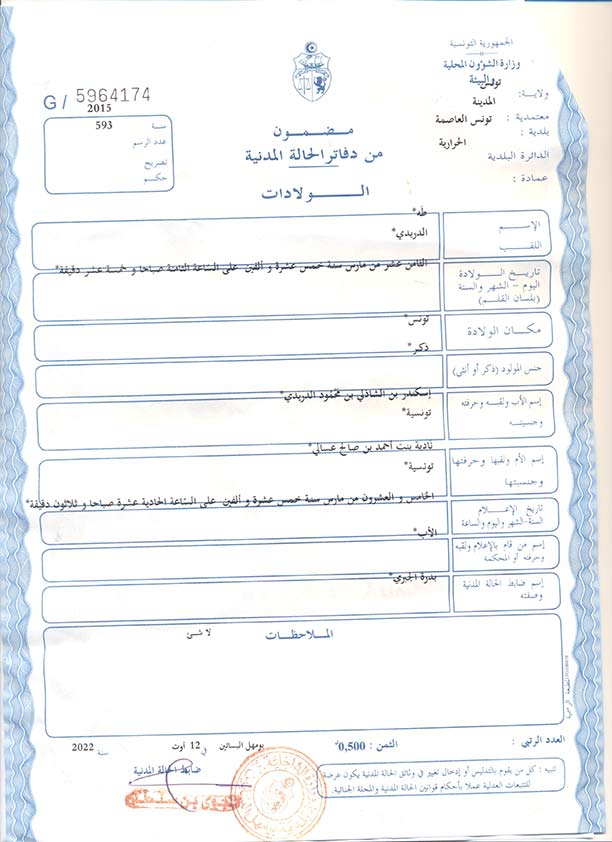 الجمهورية التونسية
وزارة الشؤون المحلية
و البيئة
ولاية: تونس
معتمدية: المدينة
بلدية: تونس العاصمة
الدائرة البلدية الحرارية
عمادة:
G/ 5964174
2015
سنة 593
عدد الرسم
تصريح
حكم
مضمون
من دفاتر الحالة المدنية
الولادات
الإسم طه*
اللقب الدريدي*
تاريخ الولادة
اليوم - الشهر والسنة
(بلسان القلم)
الثامن عشر من مارس سنة خمس عشرة و ألفين على الساعة الثامنة صباحا و خمسة عشر دقيقة*
مكان الولادة تونس*
جنس المولود (ذكر أو أنثى) ذكر*
إسم الأب ولقبه وحرفته
وجنسيته
إسكندر بن الشاذلي بن محمود الدريدي*
تونسية*
إسم الأم ولقبها وحرفتها
وجنسيتها
نادية بنت أحمد بن صالح عسالي*
تونسية*
تاريخ الإعلام
السنة-الشهر واليوم والساعة
الخامس و العشرون من مارس سنة خمس عشرة و ألفين على الساعة الحادية عشرة صباحا و ثلاثون دقيقة*
إسم من قام بالإعلام ولقبه
وحرفته أو المحكمة
الأب*
إسم ضابط الحالة المدنية
وصفته
بدرة الجبري*
الملاحظات
لا شئ
المطبعة الرسمية
العدد الرتبي:
الثمن: 0,500د
بومهل البساتين في 12 أوت 2022
ضابط الحالة المدنية
تنبيه: كل من يقوم بالتدليس أو إدخال تغيير في وثائق الحالة المدنية يكون عرضة
للتتبعات العدلية عملا بأحكام قوانين الحالة المدنية والمجلة الجنائية.